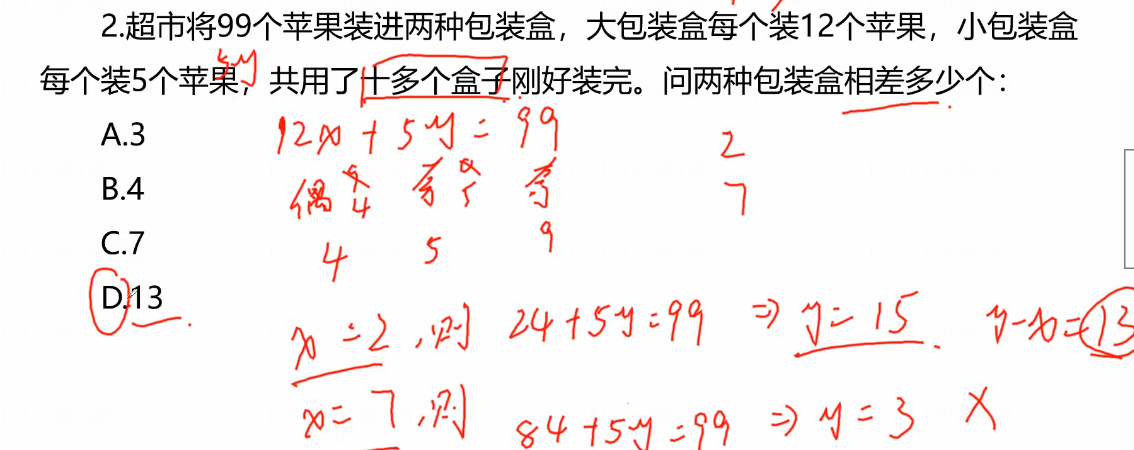 2.超市将99个苹果装进两种包装盒，大包装盒每个装12个苹果，小包装盒
5y
每个装5个苹果，共用了十多个盒子刚好装完。问两种包装盒相差多少个：
A.3
12x + 5y = 99
2
B.4
偶 奇 奇
4 5
7
C.7
4 5 9
D.13
x = 2，则 24+5y=99 ⇒ y = 15 y-x=13
x = 7，则 84+5y=99 ⇒ y = 3 ×